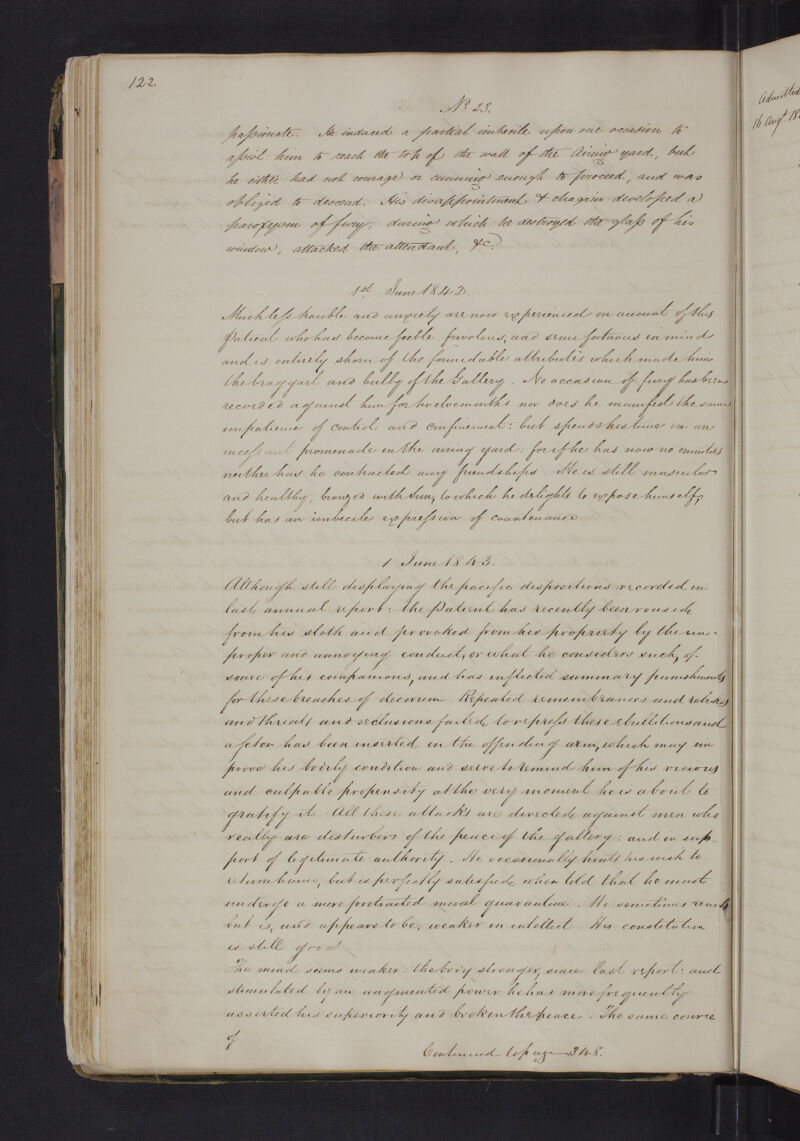 122
No 23.
passionate. He induced a partial imbecile upon one occasion to
assist him to reach the top of the wall of the Airing yard, but
he either had not courage or cunning enough to proceed, and was
obliged to descend. His disappointment & chagrin developed a
paroxysm of fury, during which he destroyed the glass of his
window, attacked the attendant, &c.
1st June 1842
Much less trouble and anxiety are now experienced on account of this
Patient who has become feeble frivolous, and semi fatuous in mind
and is entirely shorn of the formidable attributes which made him
the braggart and bully of the Gallery. No accession of fury has been
recorded against him for twelve months nor does he manifest the same
impatience of control and confinement: but spends his time in an
incessant promenade in the airing yard: for if he has now no enmities
neither has he contracted any friendships. He is still muscular
and healthy, bronzed with Sun, to which he delights to expose himself,
but has an imbecile expression of countenance.
1 June 1843
Although still displaying the pacific dispositions recorded in
last annual report: the Patient has recently been roused
from his sloth and provoked from his propriety by the im-
proper and annoying conduct, or what he considers such, of
some of his companions, and has inflicted summary punishments
for these breaches of decorum. Repeated remembrances and rebukes
and threats and seclusions failed to repress these ebullitions and
a seton has been inserted in the offending arm, which may im
prove his bodily condition and serve to remind him of his vicious
and culpable propensity at the very moment he is about to
gratify it. All these attacks are directed against men who
really are disturbers of the peace of the gallery: and in sup-
port of legitimate authority. He occasionally hints his wish to
return home, but is perfectly satisfied when told that he must
undergo a more protracted moral quarantine. He sometimes reads
but is, and appears to be, weaker in intellect. His constitution
is still good
The mind seems weaker: the body stronger, since last report: and
stimulated by an augmented power he has more frequently
asserted his superiority and broken the peace. The same course
of
Continued to page 348.
Admitted
16 Augt 18